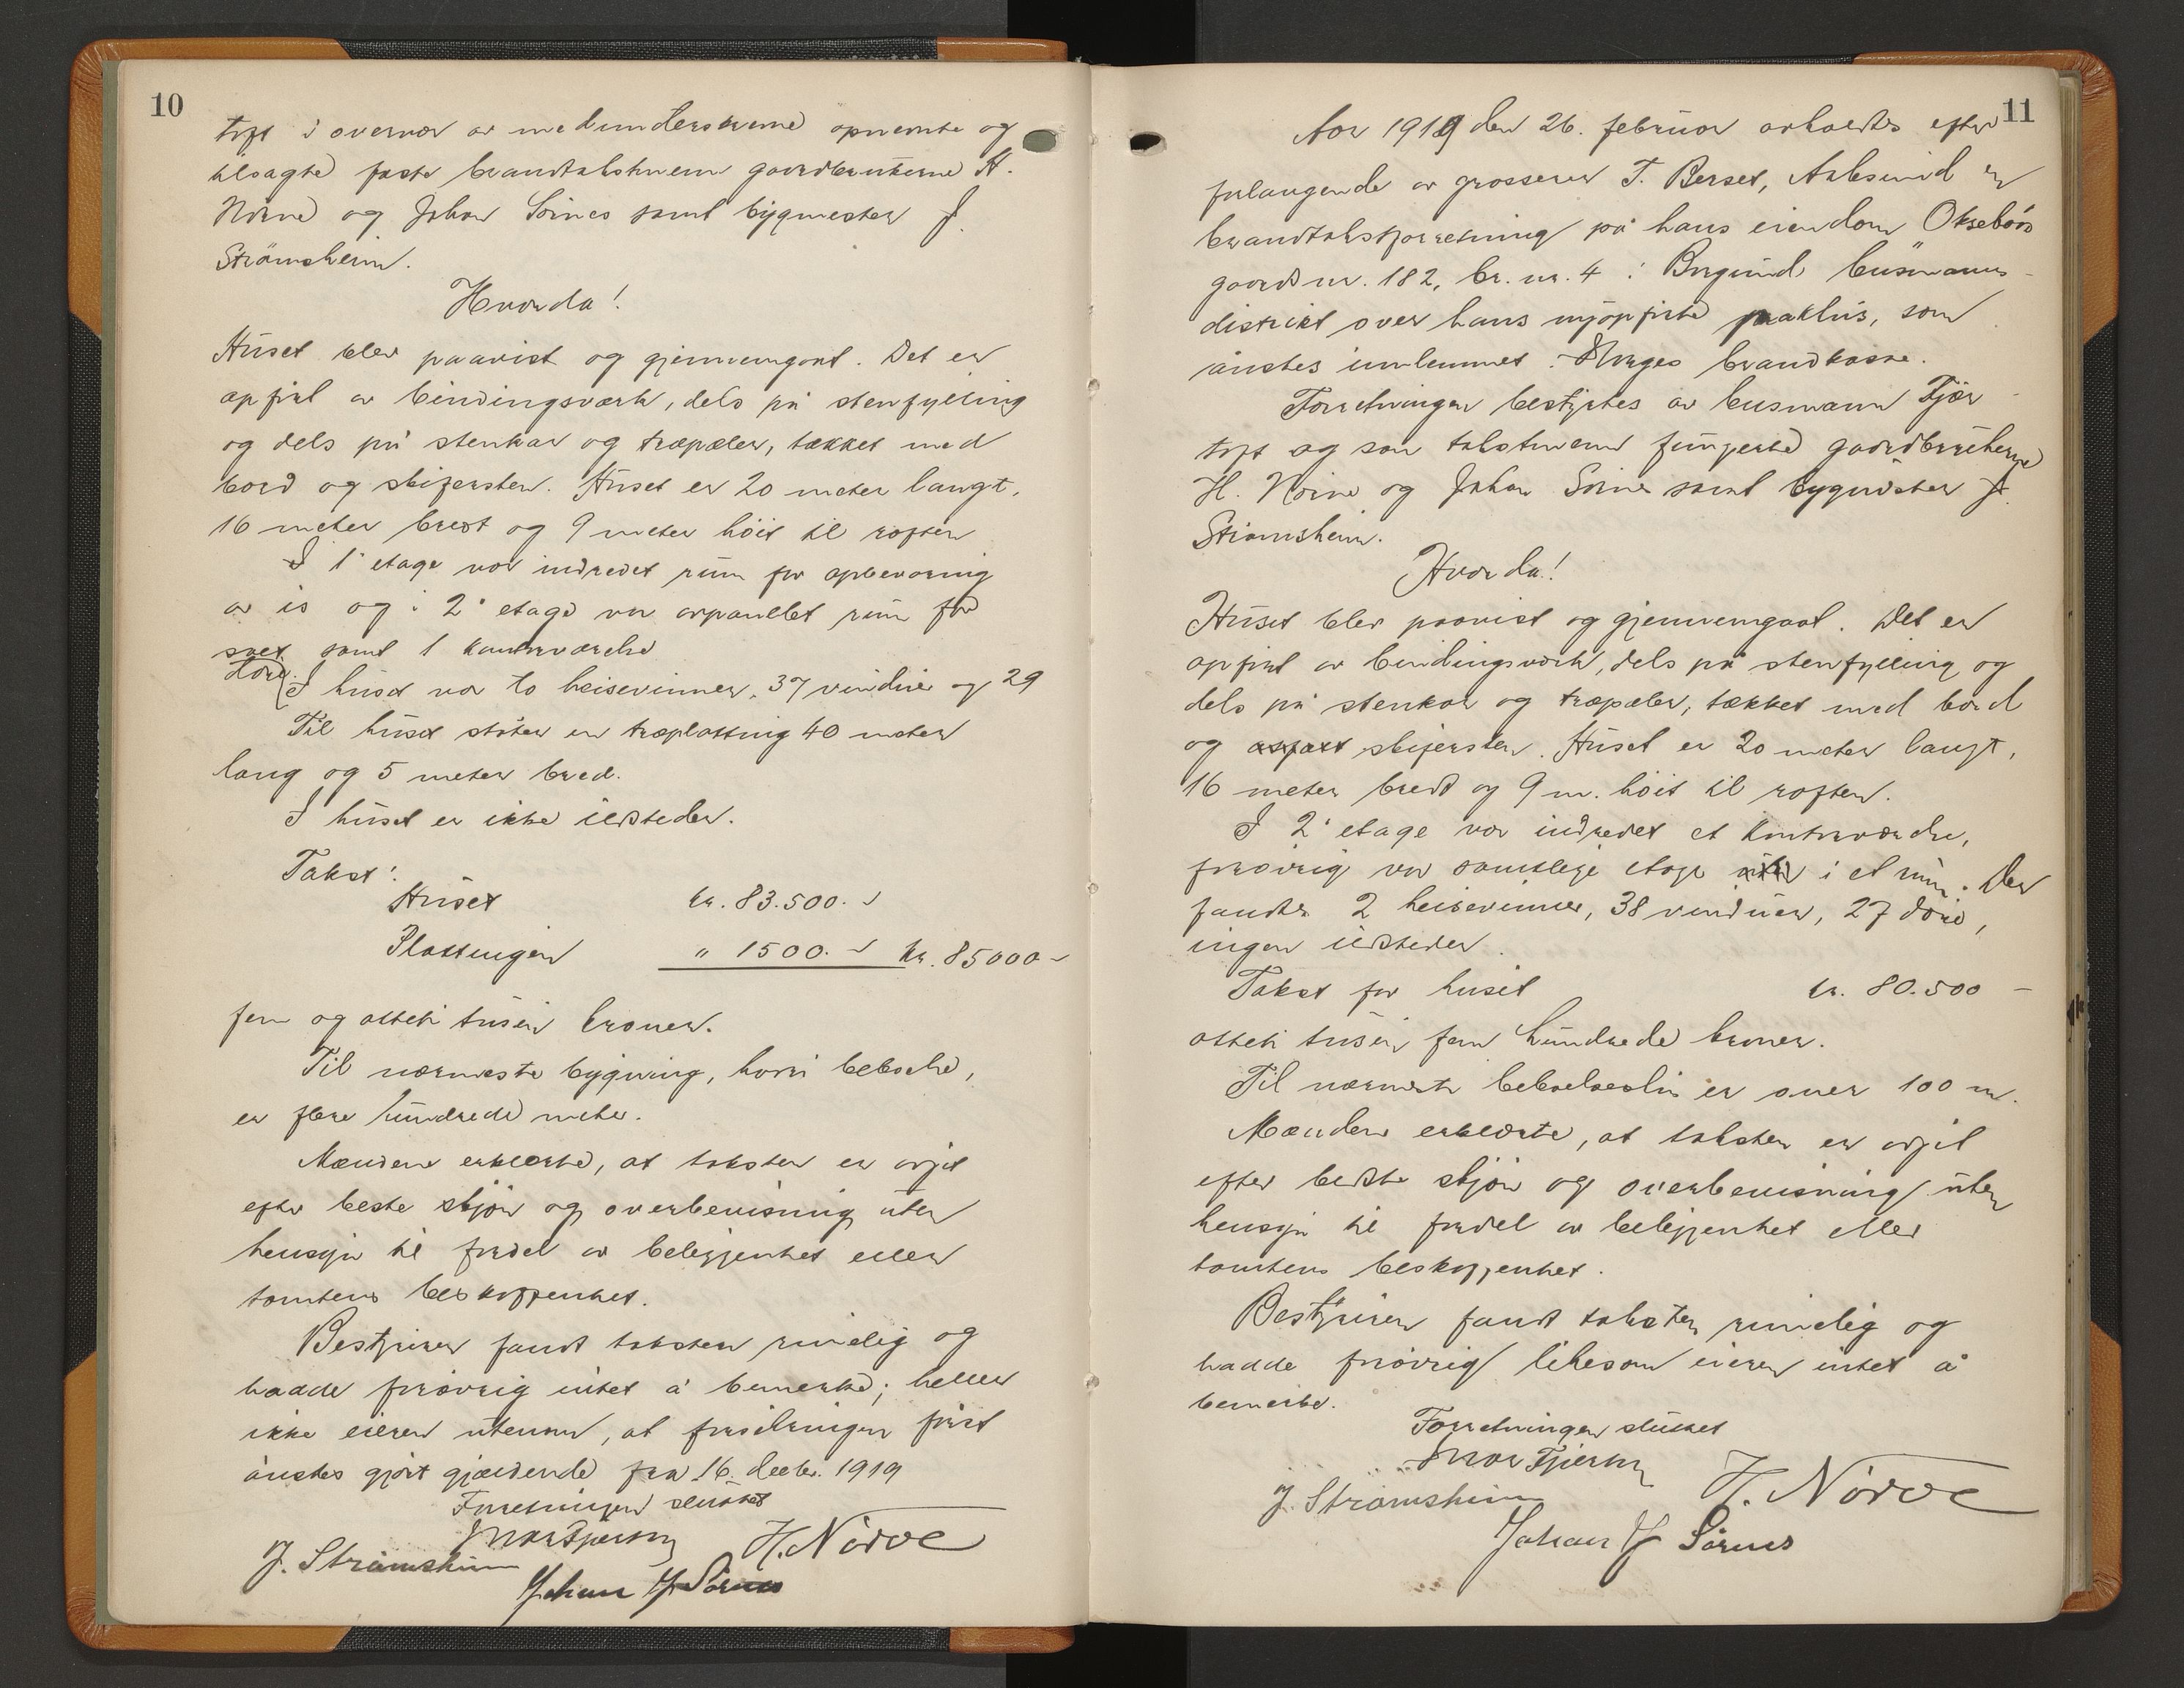 10
toft i overvær av medunderskrevne opnevnte og
tilsagte faste brandtakstmenn gaardbrukerne H.
Nörve og Johan Sörnes samt bygmester J.
Strömsheim.
Hvorda!
Huset blev paavist og gjennemgaat. Det er
opfört av bindingsverk, dels på stenfylling
og dels på stenkar og træpæler, tækket med
bord og skifersten. Huset er 20 meter langt,
16 meter bredt og 9 meter höit til roften
I 1' etage var indredet rum for opbevaring
av is og i 2' etage var avpanelet rum for
samt 1 kontorværelse
I huset var to heisevinner, 37 vinduer og 29
döre.
Til huset stöter en træplatting 40 meter
lang og 5 meter bred.
I huset er ikke ildsteder.
Takst:
Huset kr. 83.500. -
Plattingen " 1500. - kr. 85000 -
fem og otteti tusen kroner.
Til nærmeste bygning, hvori beboelse,
er flere hundrede meter.
Mændene erklærte, at taksten er avgit
efter beste skjön og overbevisning uten
hensyn til fordel av beliggenhet eller
tomtens beskaffenhet.
Bestyrer fandt taksten rimelig og
hadde forövrig intet å bemerke; heller
ikke eieren utenom, at forsikringen först
önskes gjort gjældende fra 16. decbr. 1919
Forretningen sluttet
H. Nörve
J. Strömsheim
Johan J Sörnes
11
Aar 1919 den 26. februar avholdtes efter
forlangende av grosserer T. Berset, Aalesund en
brandtakstforretning på hans eiendom Oksebås
gaards nr. 182, br. nr. 4 i Borgund lensmanns-
distrikt over hans nyopförte pakhus, som
önskes innlemmet i Norges brandkasse.
Forretningen bestyrtes av lensmann Fjör-
toft og som takstmenn fungerte gaardbrukerne
H. Nörve og Johan Sörnes samt bygmester J.
Strömsheim.
Hvorda!
Huset blev paavist og gjennemgaat. Det er
opfört av bindingsverk, dels på stenfylling og
dels på stenkar og træpæler, tækket med bord
og asfalt skifersten. Huset er 20 meter langt,
16 meter bredt og 9 m. höit til roften.
I 2' etage var indredet et kontorværelse,
forövrig var samtlige etage i et rum. Der
fandtes 2 heisevinner, 38 vinduer, 27 döre,
ingen ildsteder.
Takst for huset kr. 80.500 -
otteti tusen fem hundrede kroner.
Til nærmeste beboelseshus er over 100 m.
Mændene erklærte, at taksten er avgit
efter bedste skjön og overbevisning uten
hensyn til fordel av beliggenhet eller
tomtens beskaffenhet.
Bestyreren fandt taksten rimelig og
hadde forövrig likesom eieren intet å
bemerke.
Forretningen sluttet
H. Nörve
J. Strömsheim
Johan J Sörnes